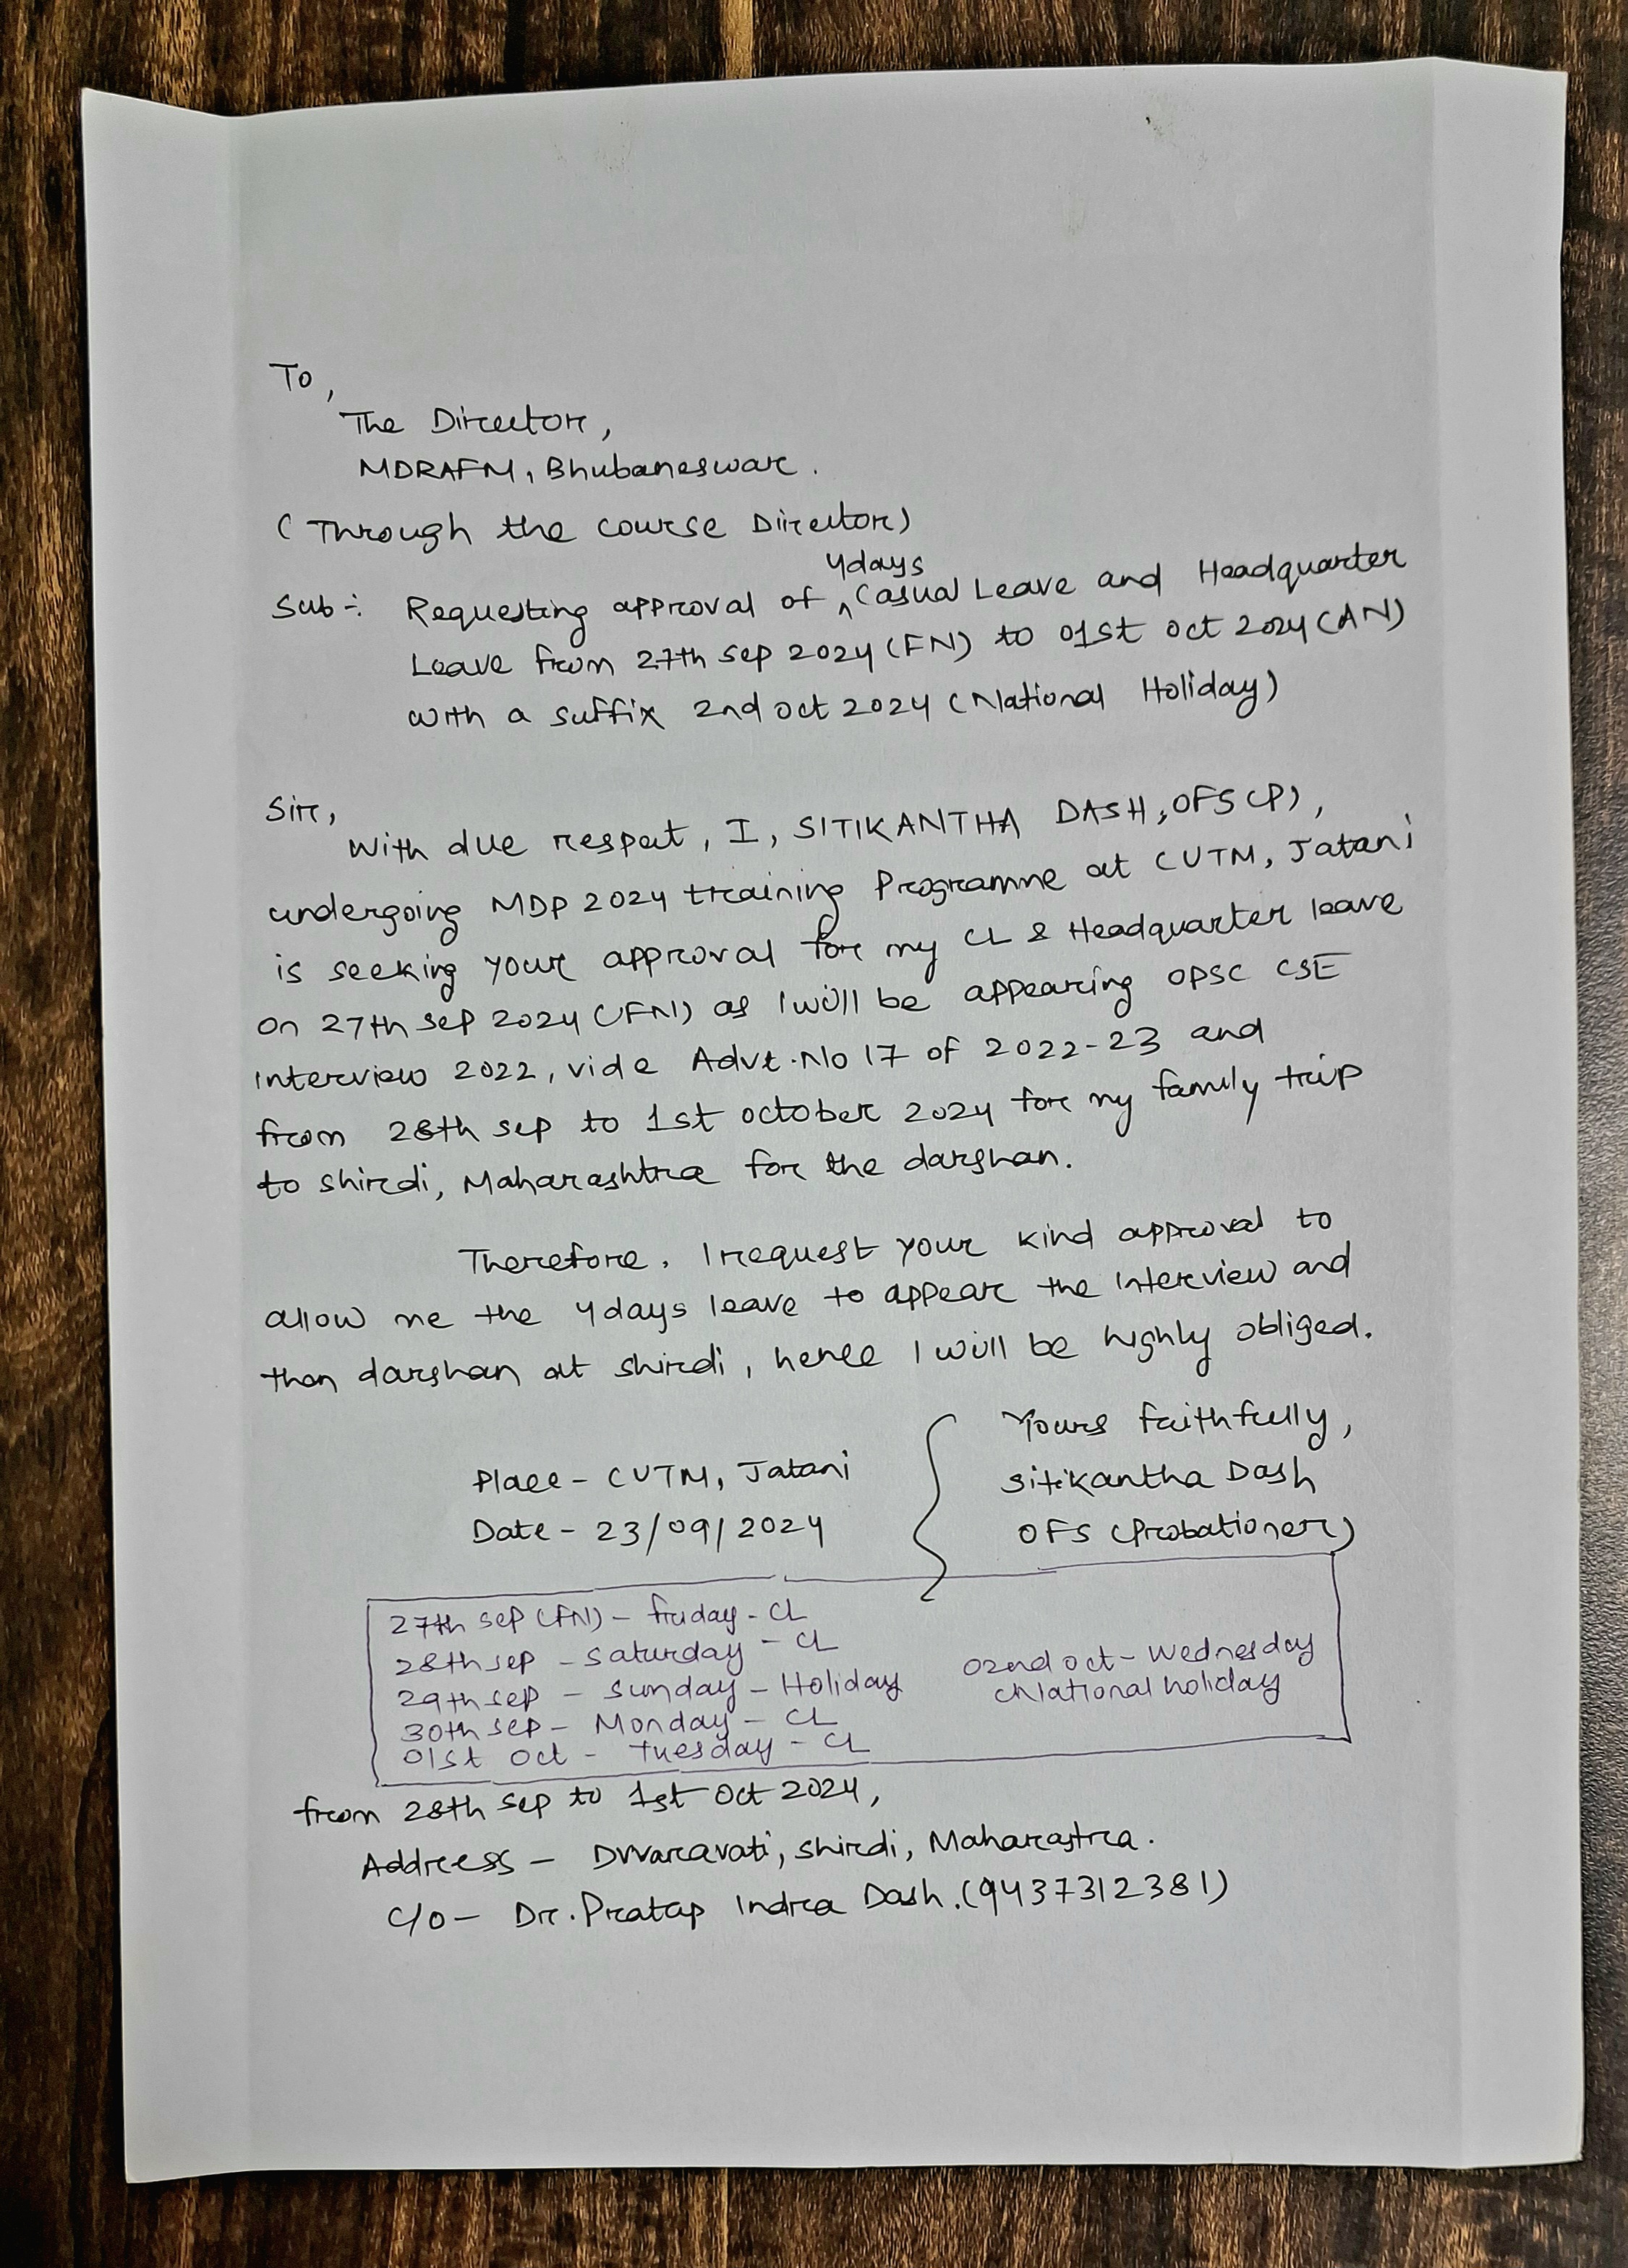 To,
The Director,
MDRAFM, Bhubaneswar.
(Through the course Director)
4days
Sub:- Requesting approval of ^ Casual Leave and Headquarter
Leave from 27th Sep 2024 (FN) to 01st Oct 2024 (AN)
with a suffix 2nd oct 2024 (National Holiday)
Sir,
With due respect, I, SITIKANTHA DASH, OFS (P),
undergoing MDP 2024 training Programme at CUTM, Jatani
is seeking your approval for my CL & Headquarter leave
on 27th Sep 2024 (FN) as I will be appearing OPSC CSE
Interview 2022, vide Advt. No 17 of 2022-23 and
from 28th Sep to 1st october 2024 for my family trip
to Shirdi, Maharashtra for the darshan.
Therefore, I request your kind approval to
allow me the 4days leave to appear the Interview and
then darshan at Shirdi, hence I will be highly obliged.
Place - CUTM, Jatani
Date - 23/09/2024
Yours Faithfully,
Sitikantha Dash
OFS (Probationer)
27th Sep (FN) - Friday - CL
28th Sep - Saturday - CL
29th Sep - Sunday - Holiday
30th Sep - Monday - CL
01st Oct - Tuesday - CL
02nd oct - Wednesday
(National holiday)
from 28th Sep to 1st Oct 2024,
Address - Dwaravati, Shirdi, Maharastra.
C/O - Dr. Pratap Indra Dash. (9437312381)